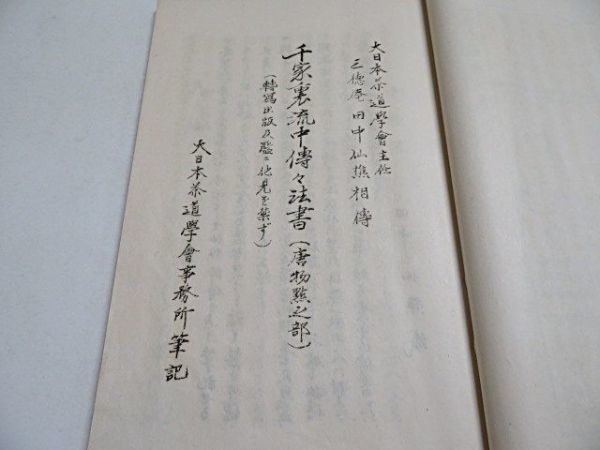 大日本茶道學會主任
三徳庵田中仙樵相傳
千家裏流中傳々法書(唐物點之部)
(轉寫出版及濫ニ他見ヲ禁ず)
大日本茶道學會事務所筆記